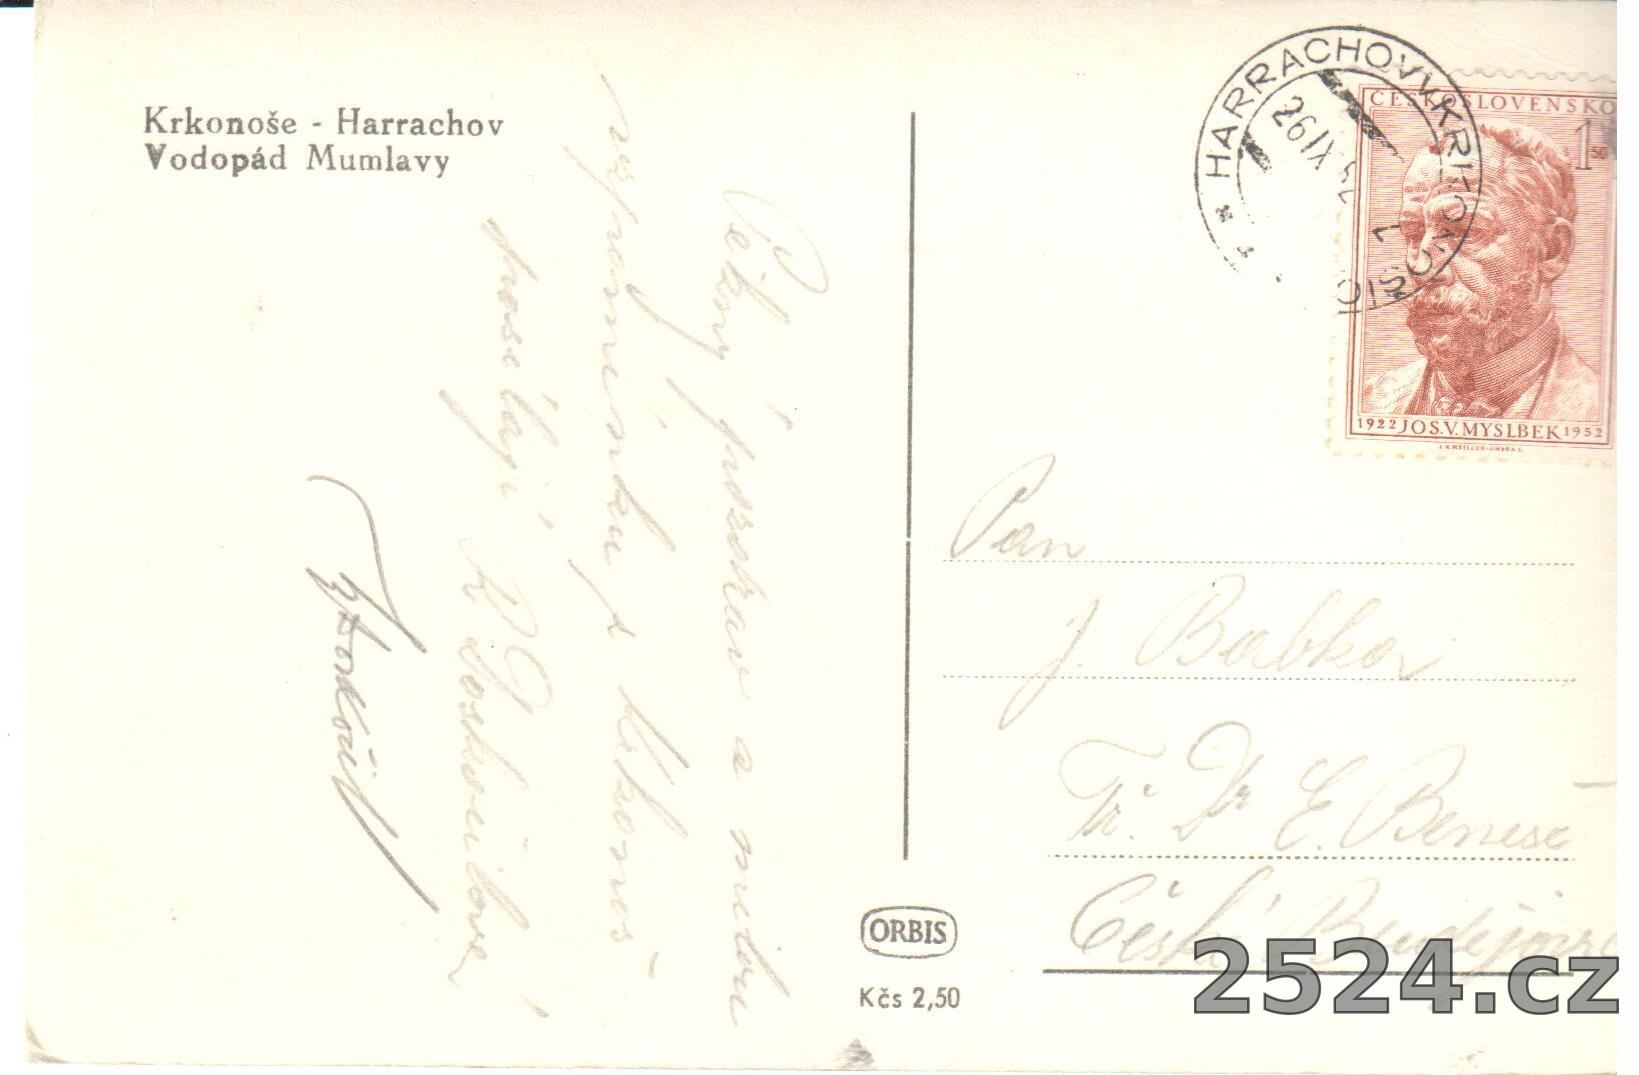 Krkonoše - Harrachov
Vodopád Mumlavy
Pěkný pozdrav a milou
vzpomínku z Krkonoš
posílají
HARRACHOV V KRKONOŠÍCH
26 IX 52
ČESKOSLOVENSKO
1 50
1922 JOS.V. MYSLBEK 1952
Pan
J. Babka
Tř. Dr E. Beneše
České Budějovice
ORBIS
Kčs 2,50
2524.cz